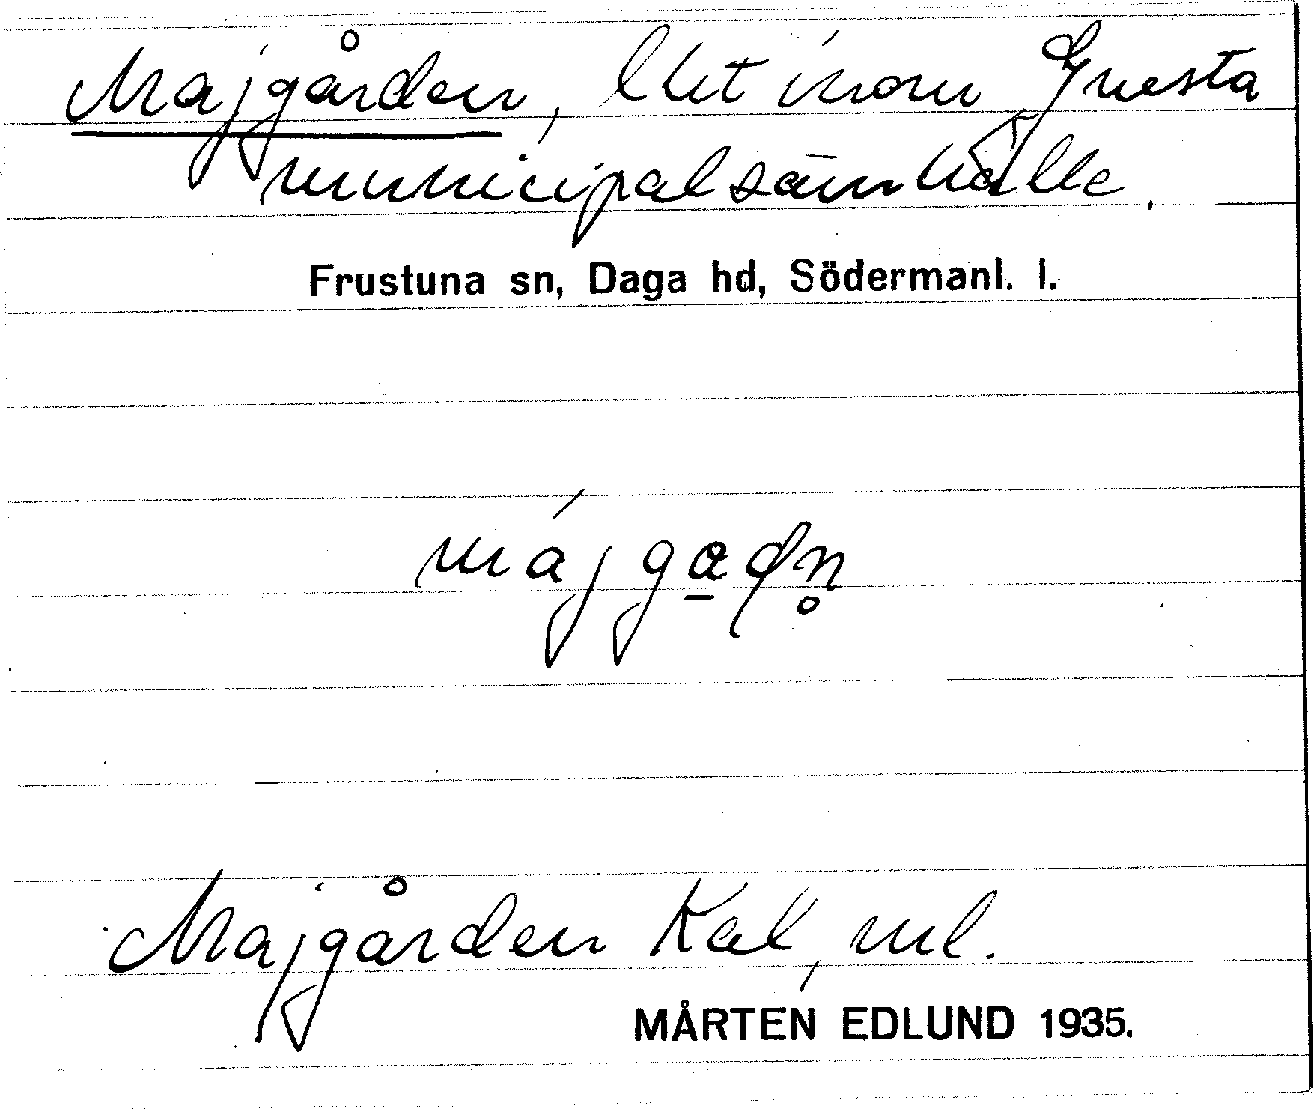 Majgården, lht inom Gnesta
municipalsamhälle.
Frustuna sn, Daga hd, Södermanl. l.
Majgården Kal, ml.
MÅRTEN EDLUND 1935.